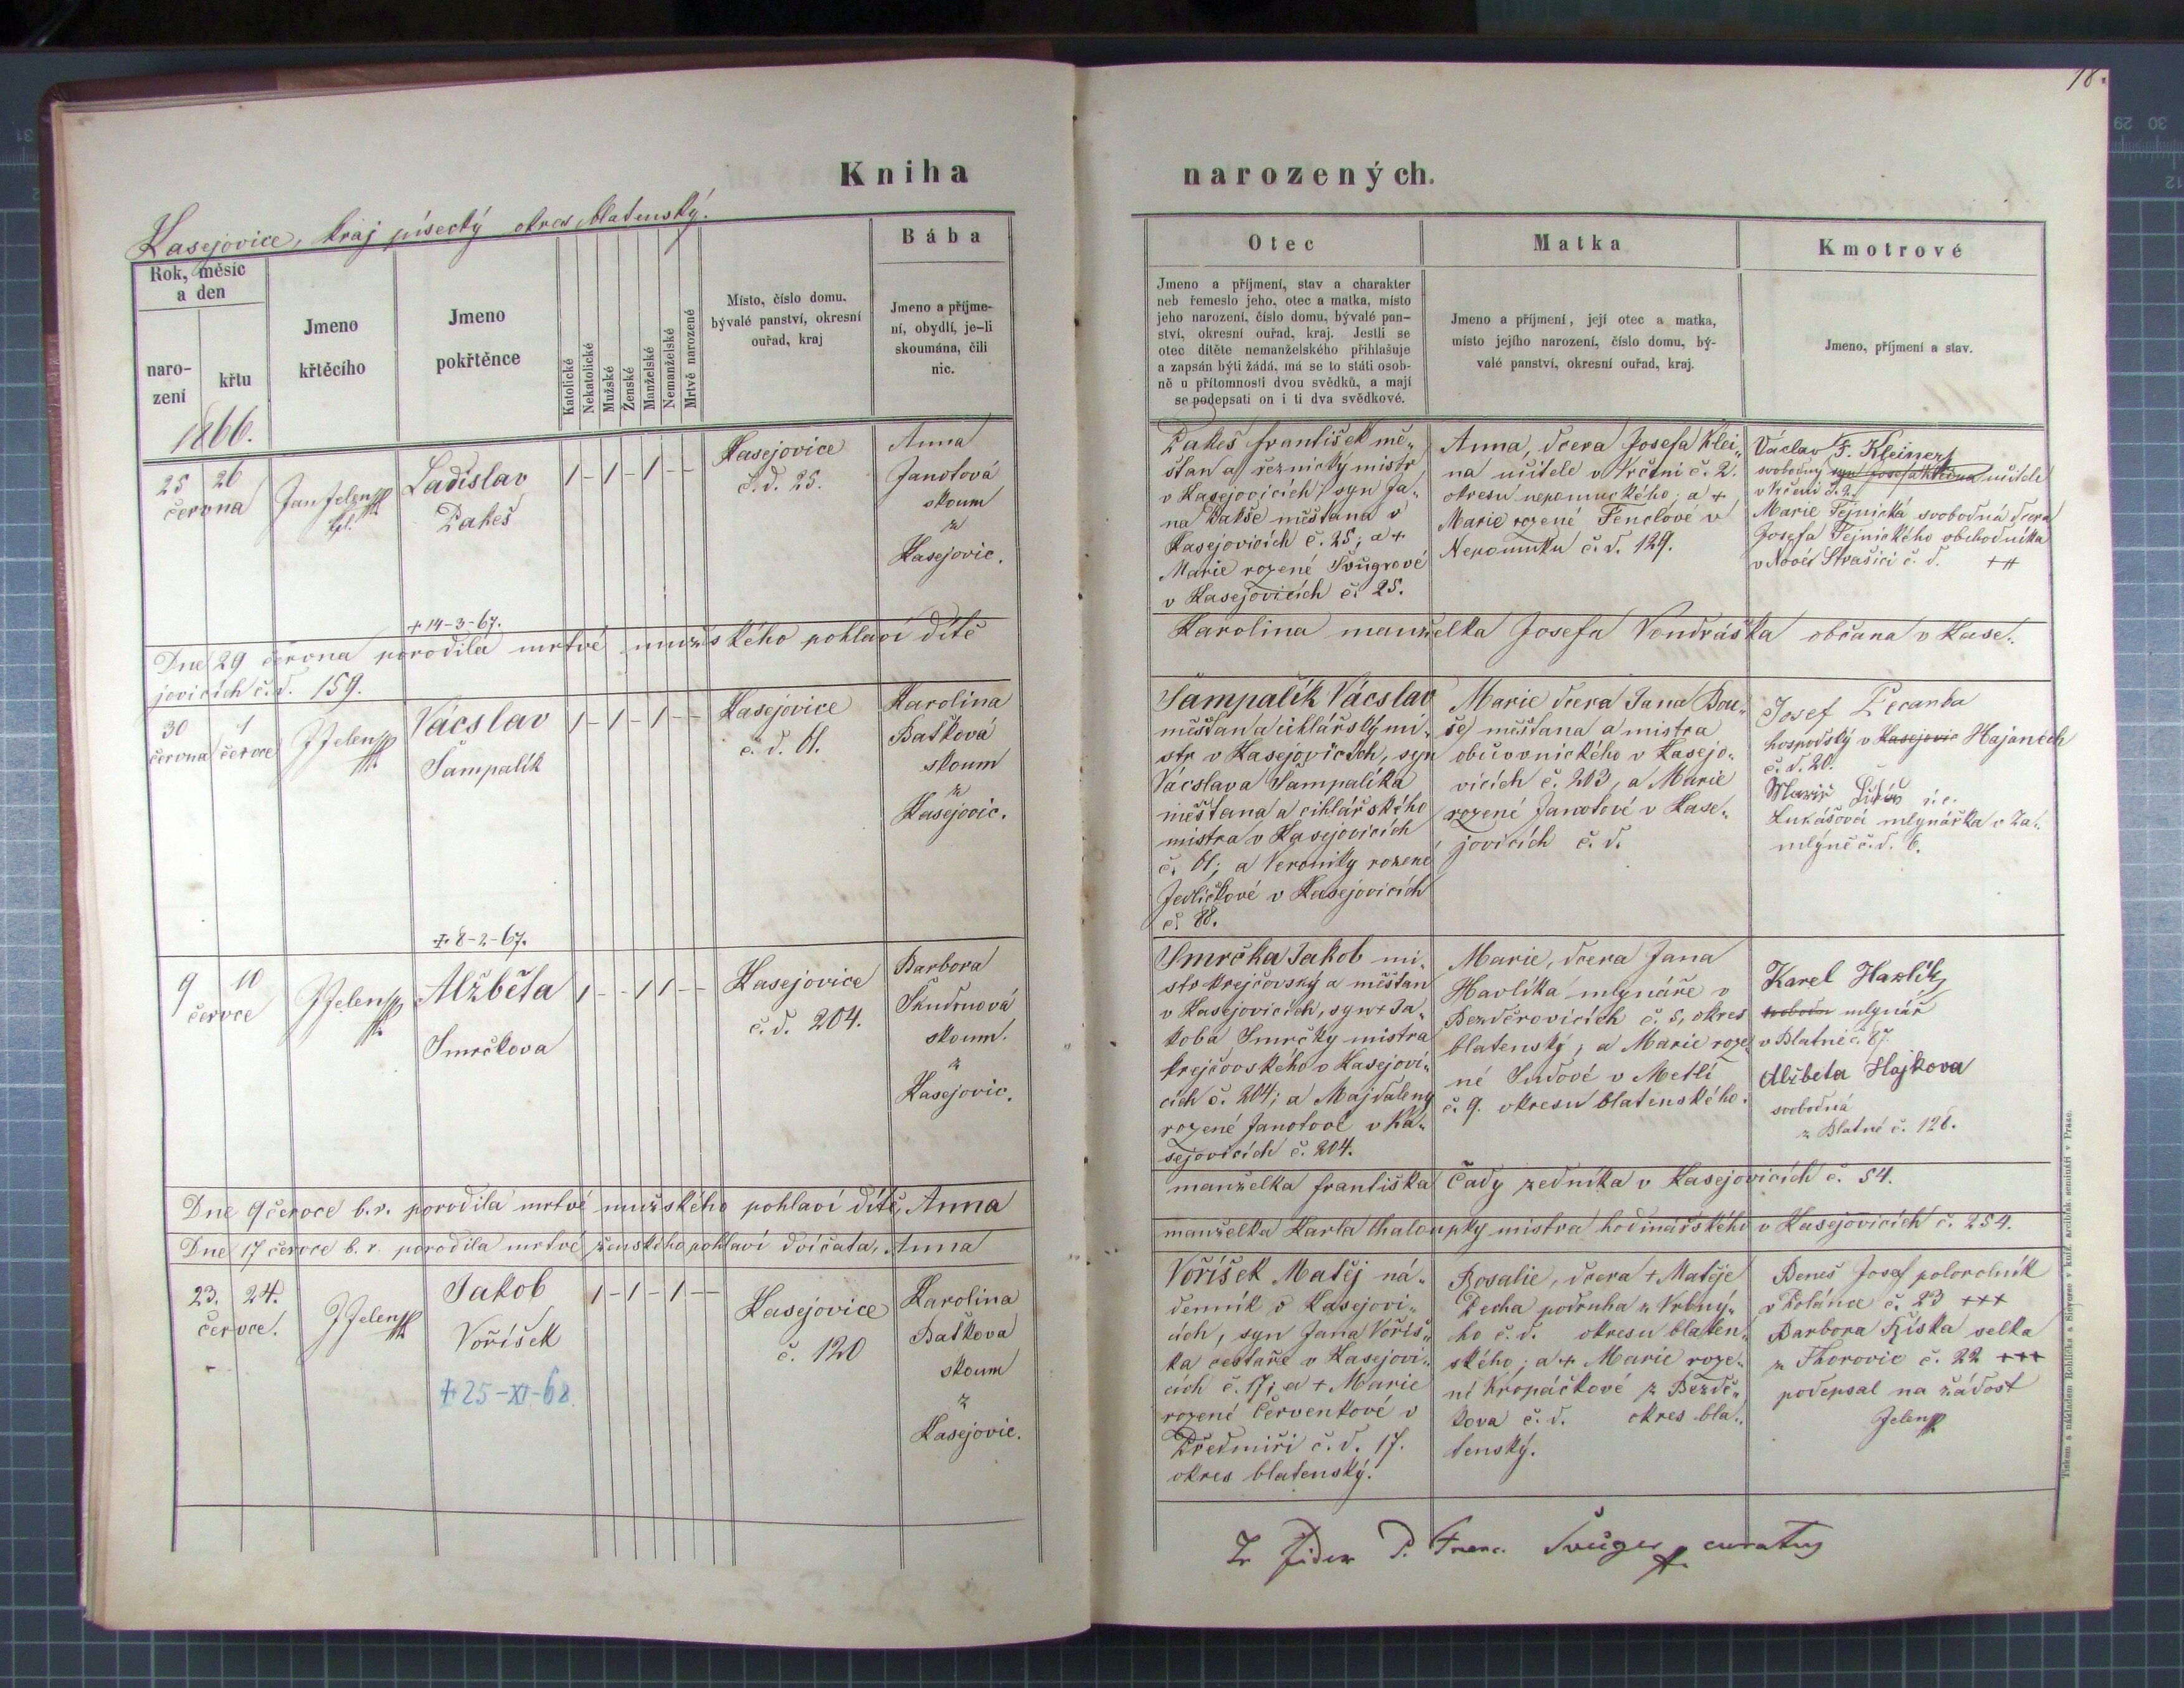 18.
Kniha narozených.
Kasejovice, kraj písecký okres blatenský.
Rok, měsíc
a den
naro-
zení
křtu
Jmeno
křtěcího
Jmeno
pokřtěnce
Katolické
Nekatolické
Mužské
Ženské
Manželské
Nemanželské
Mrtvě narozené
Místo, číslo domu,
bývalé panství, okresní
ouřad, kraj
Bába
Jmeno a příjme-
ní, obydlí, je-li
skoumána, čili
nic.
Otec
Jmeno a příjmení, stav a charakter
neb řemeslo jeho, otec a matka, místo
jeho narození, číslo domu, bývalé pan-
ství, okresní ouřad, kraj. Jestli se
otec dítěte nemanželského přihlašuje
a zapsán býti žádá, má se to státi osob-
ně u přítomnosti dvou svědků, a mají
se podepsati on i ti dva svědkové.
Matka
Jmeno a příjmení, její otec a matka,
místo jejího narození, číslo domu, bý-
valé panství, okresní ouřad, kraj.
Kmotrové
Jmeno, příjmení a stav.
1866.
25 26
června
Jan Jelen
Ladislav
Pakeš
+ 14-3-67.
1 - 1 - 1 - -
Kasejovice
č. d. 25.
Anna
Janotová
skoum
z
Kasejovic.
Pakeš František mě„
šťan a řeznický mistr
v Kasejovicích, syn Ja„
na Pakše měšťana v
Kasejovicích č. 25; a +
Marie rozené Švůgrové
v Kasejovicích č. 25.
Anna, dcera Josefa Klei„
na učitele v Vrčeni č. 2.
okresu nepomuckého; a +
Marie rozené Fenclové v
Nepomuku č. d. 129.
Václav F. Kleiner
svobodný syn Josefa Kleina učitele
v Vrčeni č. 2.
Marie Tejnická svobodná dcera
Josefa Tejnického obchodníka
v Nové Strašici č. d. +++
Dne 29 června porodila mrtvé mužského pohlaví dítě Karolina manželka Josefa Vondráška občana v Kase„
jovicích č. d. 159.
30 1
června července
J Jelen
Vácslav
Šampalík
+ 8-2-67.
1 - 1 - 1 - -
Kasejovice
č. d. 61.
Karolina
Batková
skoum
z
Kasejovic.
Šampalík Vácslav
měšťan a cihlářský mi„
str v Kasejovicích, syn
Vácslava Šampalíka
měšťana a cihlářského
mistra v Kasejovicích
č. 61; a Veroniky rozené
Jedličkové v Kasejovicích
č. 88.
Marie dcera Jana Bou„
še měšťana a mistra
obuvnického v Kasejo„
vicích č. 203, a Marie
rozené Janotové v Kase„
jovicích č. d.
Josef
hospodský v Kasejovic Hajanech
č. d. 20.
Marie
Lukášová mlynářka v Za„
mlýně č. d. 6.
9 10
července
J Jelen
Alžběta
Smrčkova
1 - - 1 1 - -
Kasejovice
č. d. 204.
Barbora
skoum.
z
Kasejovic.
Smrčka Jakob mi„
str krejčovský a měšťan
v Kasejovicích, syn + Ja„
koba Smrčky mistra
krejčovského v Kasejovi„
cích č. 204; a Majdaleny
rozené Janotové v Ka„
sejovicích č. 204.
Marie, dcera Jana
Havlíka mlynáře v
Bezděrovicích č. 5, okres
blatenský; a Marie roze„
né Sudové v Metlí
č. 9. okresu blatenského.
Karel Hawlík
svobodn mlynář
v Blatné č. 87.
Alžbeta Hajkova
svobodná
z Blatné č. 126.
Dne 9 července b. r. porodila mrtvé mužského pohlaví dítě, Anna manželka Františka Čady zedníka v Kasejovicích č. 54.
Dne 17 července b. r. porodila mrtvé ženského pohlaví dvíčata, Anna manželka Karla Chaloupky mistra hodinářského v Kasejovicích č. 254.
23. 24.
července.
J Jelen
Jakob
Voříšek
+ 25-XI-68.
1 - 1 - 1 - -
Kasejovice
č. 120
Karolina
Batkova
skoum
z
Kasejovic.
Voříšek Matěj ná„
denník v Kasejovi„
cích, syn Jana Voříš„
ka cestáře v Kasejovi„
cích č. 17; a + Marie
rozené Červenkové v
Předmíři č. d. 17.
okres blatenský.
Rosalie, dcera + Matěje
Pecha podruha z Vrbný„
ho č. d. okresu blaten„
ského; a + Marie roze„
ní Kropáčkové z Bezdě„
kova č. d. okres bla„
tenský.
Beneš Josef polorolník
v Polánce č. 23 +++
Barbora Říska selka
z Thorovic č. 22 +++
podepsal na žádost
Jelen
P. Franc. Švůger curatus
Tiskem a nákladem Rohlíčka a Sieverse v kníž. arcibisk. semináři v Praze.